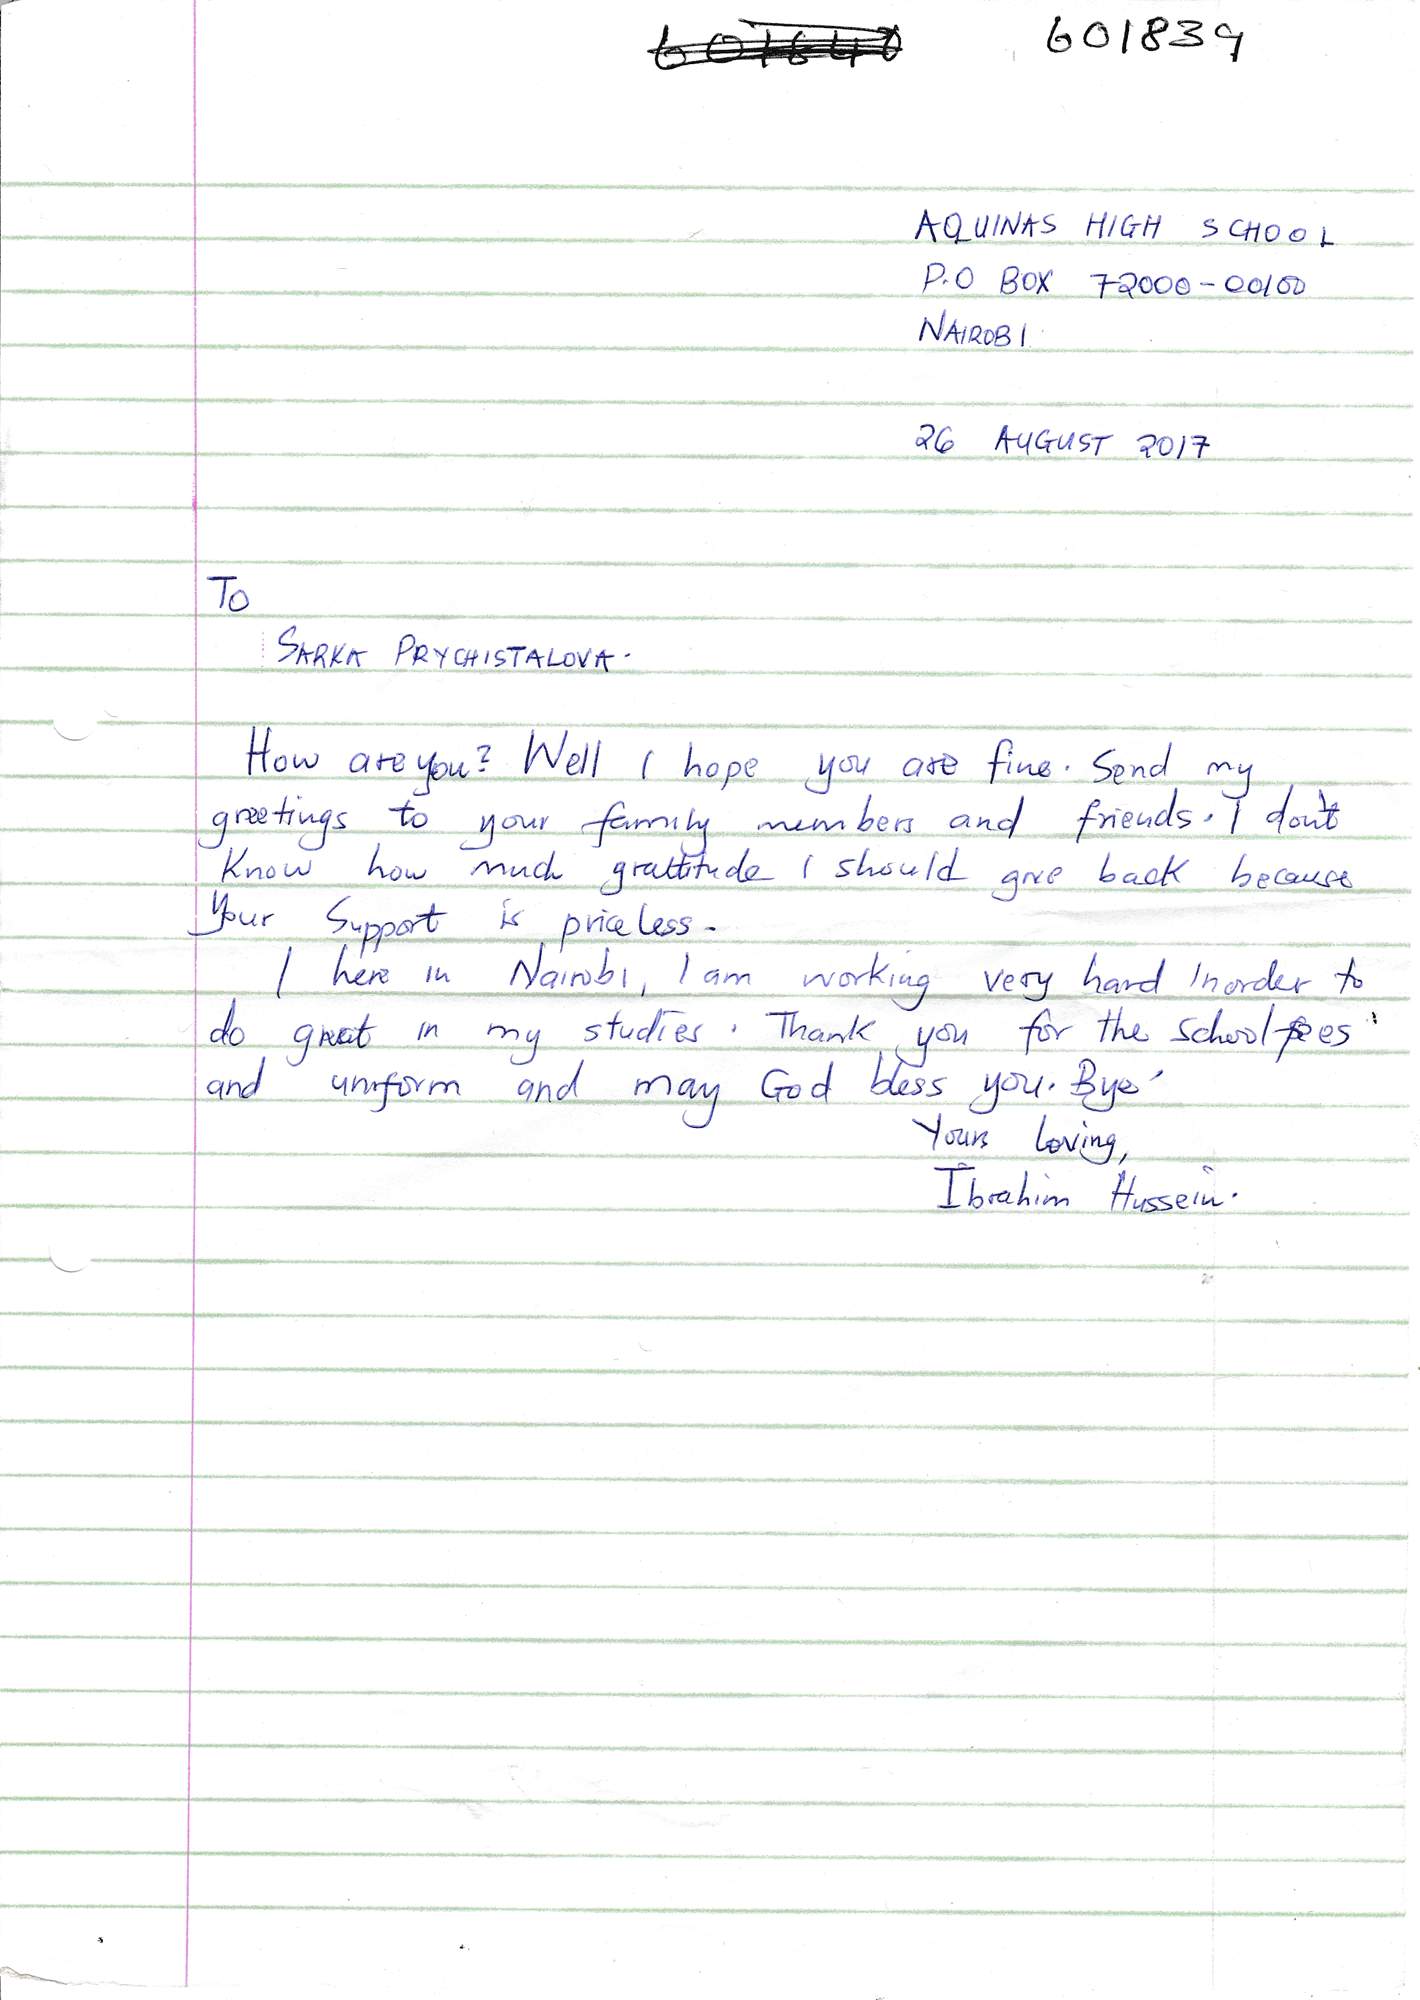 601840 601839
AQUINAS HIGH SCHOOL
P.O BOX 72000-00100
NAIROBI.
26 AUGUST 2017
To
SARKA PRYCHISTALOVA.
How are you? Well I hope you are fine. Send my
greetings to your family members and friends. I don't
know how much grattitude I should give back because
your support is priceless.
I here in Nairobi, I am working very hard inorder to
do great in my studies. Thank you for the school fees
and uniform and may God bless you. Bye
Yours loving,
Ibrahim Hussein.